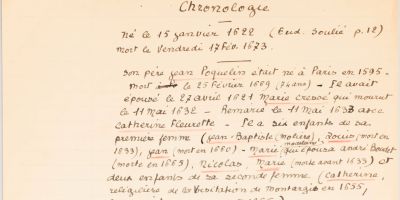 Chronologie
Né le 15 janvier 1622 (Eud. Soulié p.12)
mort le Vendredi 17 Fév. 1673.
Son père Jean Poquelin était né à Paris en 1595 -
mort le 25 Février 1669 (74 ans) - Il avait
épousé le 27 avril 1621 Marie Cressé qui mourut
le 11 mai 1632 - Remarié le 11 mai 1633 avec
Catherine Fleurette - Il a six enfants de sa
première femme (Jean-Baptiste (Molière), Louis (mort en
1633), Jean (mort en 1660) - Marie Madeleine (qui épousa André Boudet
(morte en 1665), Nicolas, Marie (morte avant 1633) et
deux enfants de sa seconde femme (Catherine,
religieuse de la Visitation de Montargis en 1655,